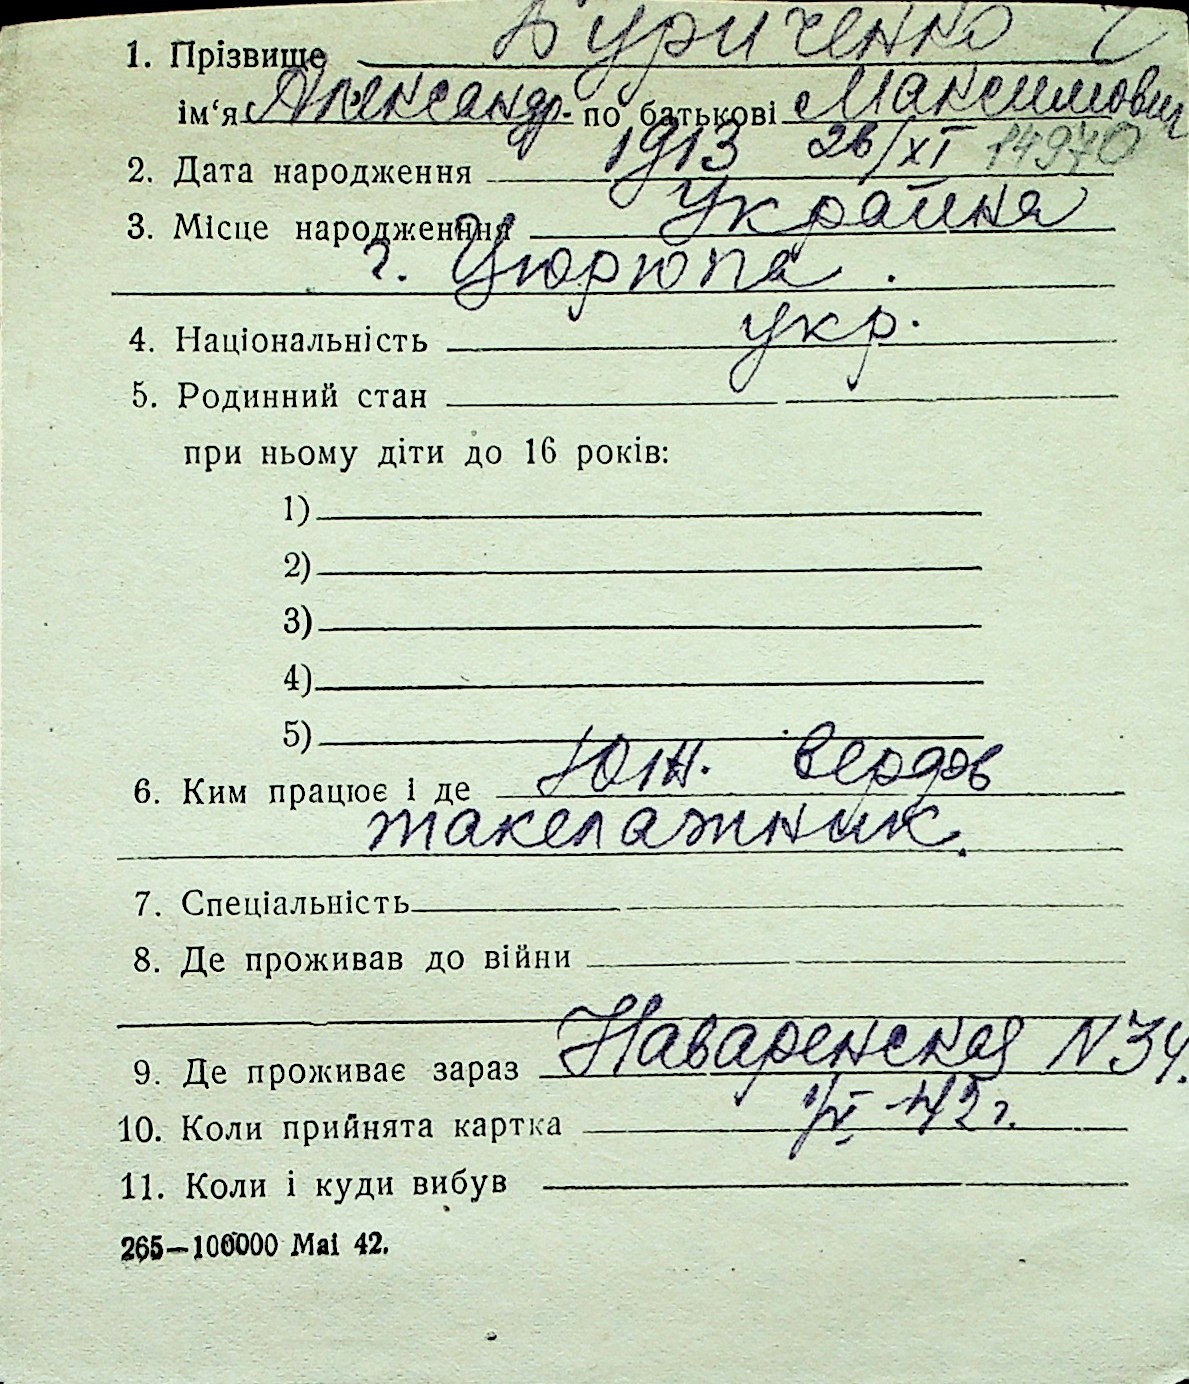 1. Прізвище Буриченко
ім‘я Александр. по батькові Максимович
2. Дата народження 1913 26/XI 14970
3. Місце народженння Украйна
г. Цюрюпа.
4. Національність укр.
5. Родинний стан
при ньому діти до 16 років:
1)
2)
3)
4)
5)
6. Ким працює і де Юж. Вердов
такелажник.
7. Спеціальність
8. Де проживав до війни
9. Де проживає зараз Наваренская N 34.
10. Коли прийнята картка 1/IX 42 г.
11. Коли і куди вибув
265—100000 Mai 42.